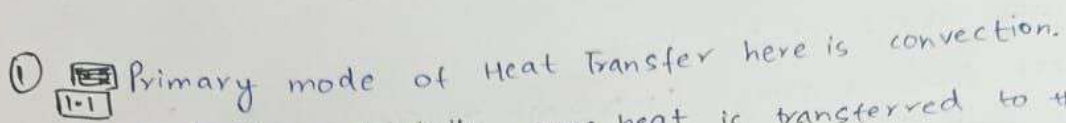 ① Primary mode of Heat Transfer here is convection.
1.1
heat is transferred to